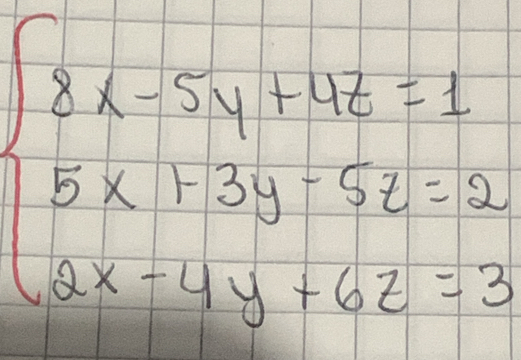 8x - 5y + 4z = 1
5x + 3y - 5z = 2
2x - 4y + 6z = 3